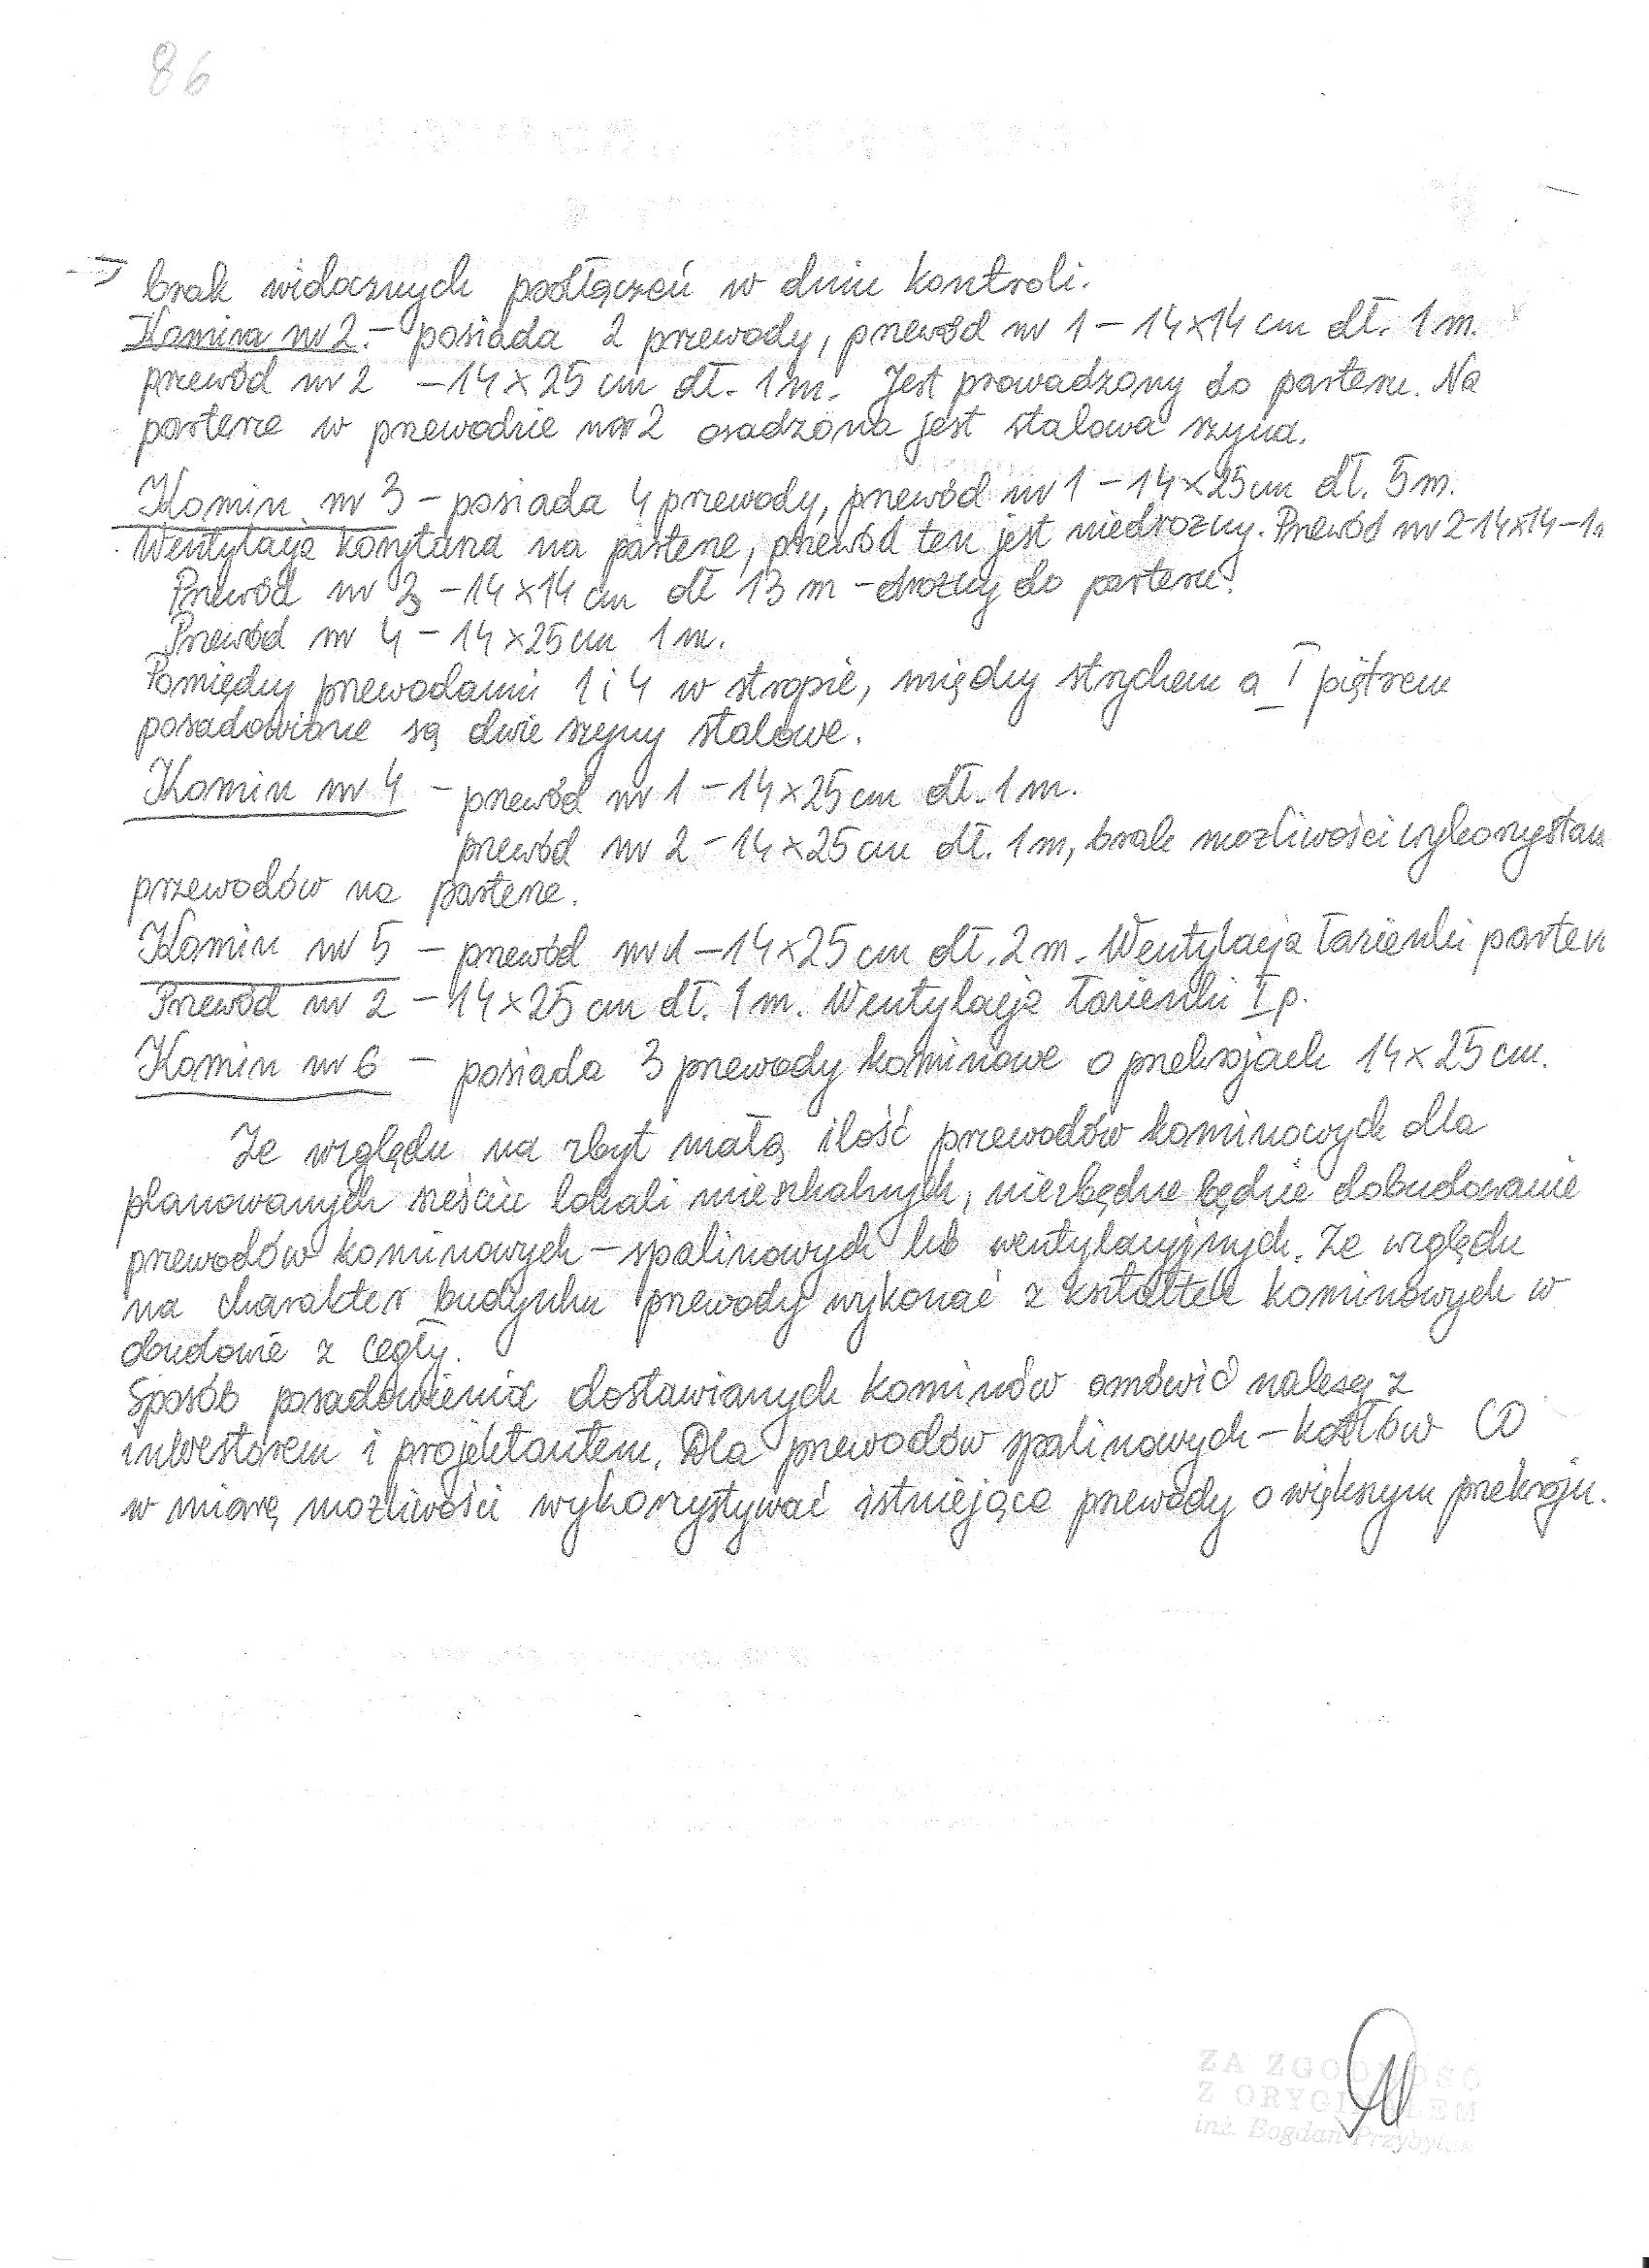 86
brak widocznych podłączeń w dniu kontroli.
Komin nr 2. – posiada 2 przewody, przewód nr 1 – 14x14 cm dł. 1m.
przewód nr 2 – 14x25 cm dł. 1m. Jest prowadzony do parteru. Na
parterze w przewodzie nr 2 osadzona jest stalowa szyna.
Komin nr 3 – posiada 4 przewody, przewód nr 1 – 14x25cm dł. 5m.
Wentylacja korytarza na parterze, przewód ten jest niedrożny. Przewód nr 2-14x14-1
Przewód nr 3 – 14x14 cm dł 13 m – drożny do parteru.
Przewód nr 4 – 14x25cm 1m.
Pomiędzy przewodami 1 i 4 w stropie, między strychem a I piętrem
posadowione są dwie szyny stalowe.
Komin nr 4 – przewód nr 1 – 14x25cm dł. 1m.
przewód nr 2 – 14x25cm dł. 1m, brak możliwości wykorzystan
przewodów na parterze.
Komin nr 5 – przewód nr 1 – 14x25 cm dł. 2m. Wentylacja łazienki parter
Przewód nr 2 – 14x25 cm dł. 1m. Wentylacja łazienki I p.
Komin nr 6 – posiada 3 przewody kominowe o przekrojach 14x25cm.
Ze względu na zbyt małą ilość przewodów kominowych dla
planowanych sześciu lokali mieszkalnych, niezbędne będzie dobudowanie
przewodów kominowych – spalinowych lub wentylacyjnych. Ze względu
na charakter budynku przewody wykonać z kształtek kominowych w
obudowie z cegły.
Sposób posadowienia dostawianych kominów omówić należy z
inwestorem i projektantem. Dla przewodów spalinowych – kotłów CO
w miarę możliwości wykorzystywać istniejące przewody o większym przekroju.
ZA ZGODNOŚĆ
Z ORYGINAŁEM
inż. Bogdan